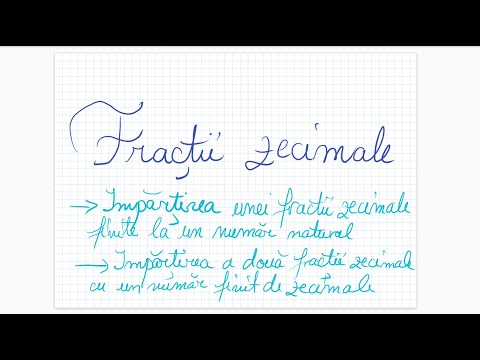 Fracții zecimale
→ Împărțirea unei fracții zecimale
finite la un număr natural
→ Împărțirea a două fracții zecimale
cu un număr finit de zecimale